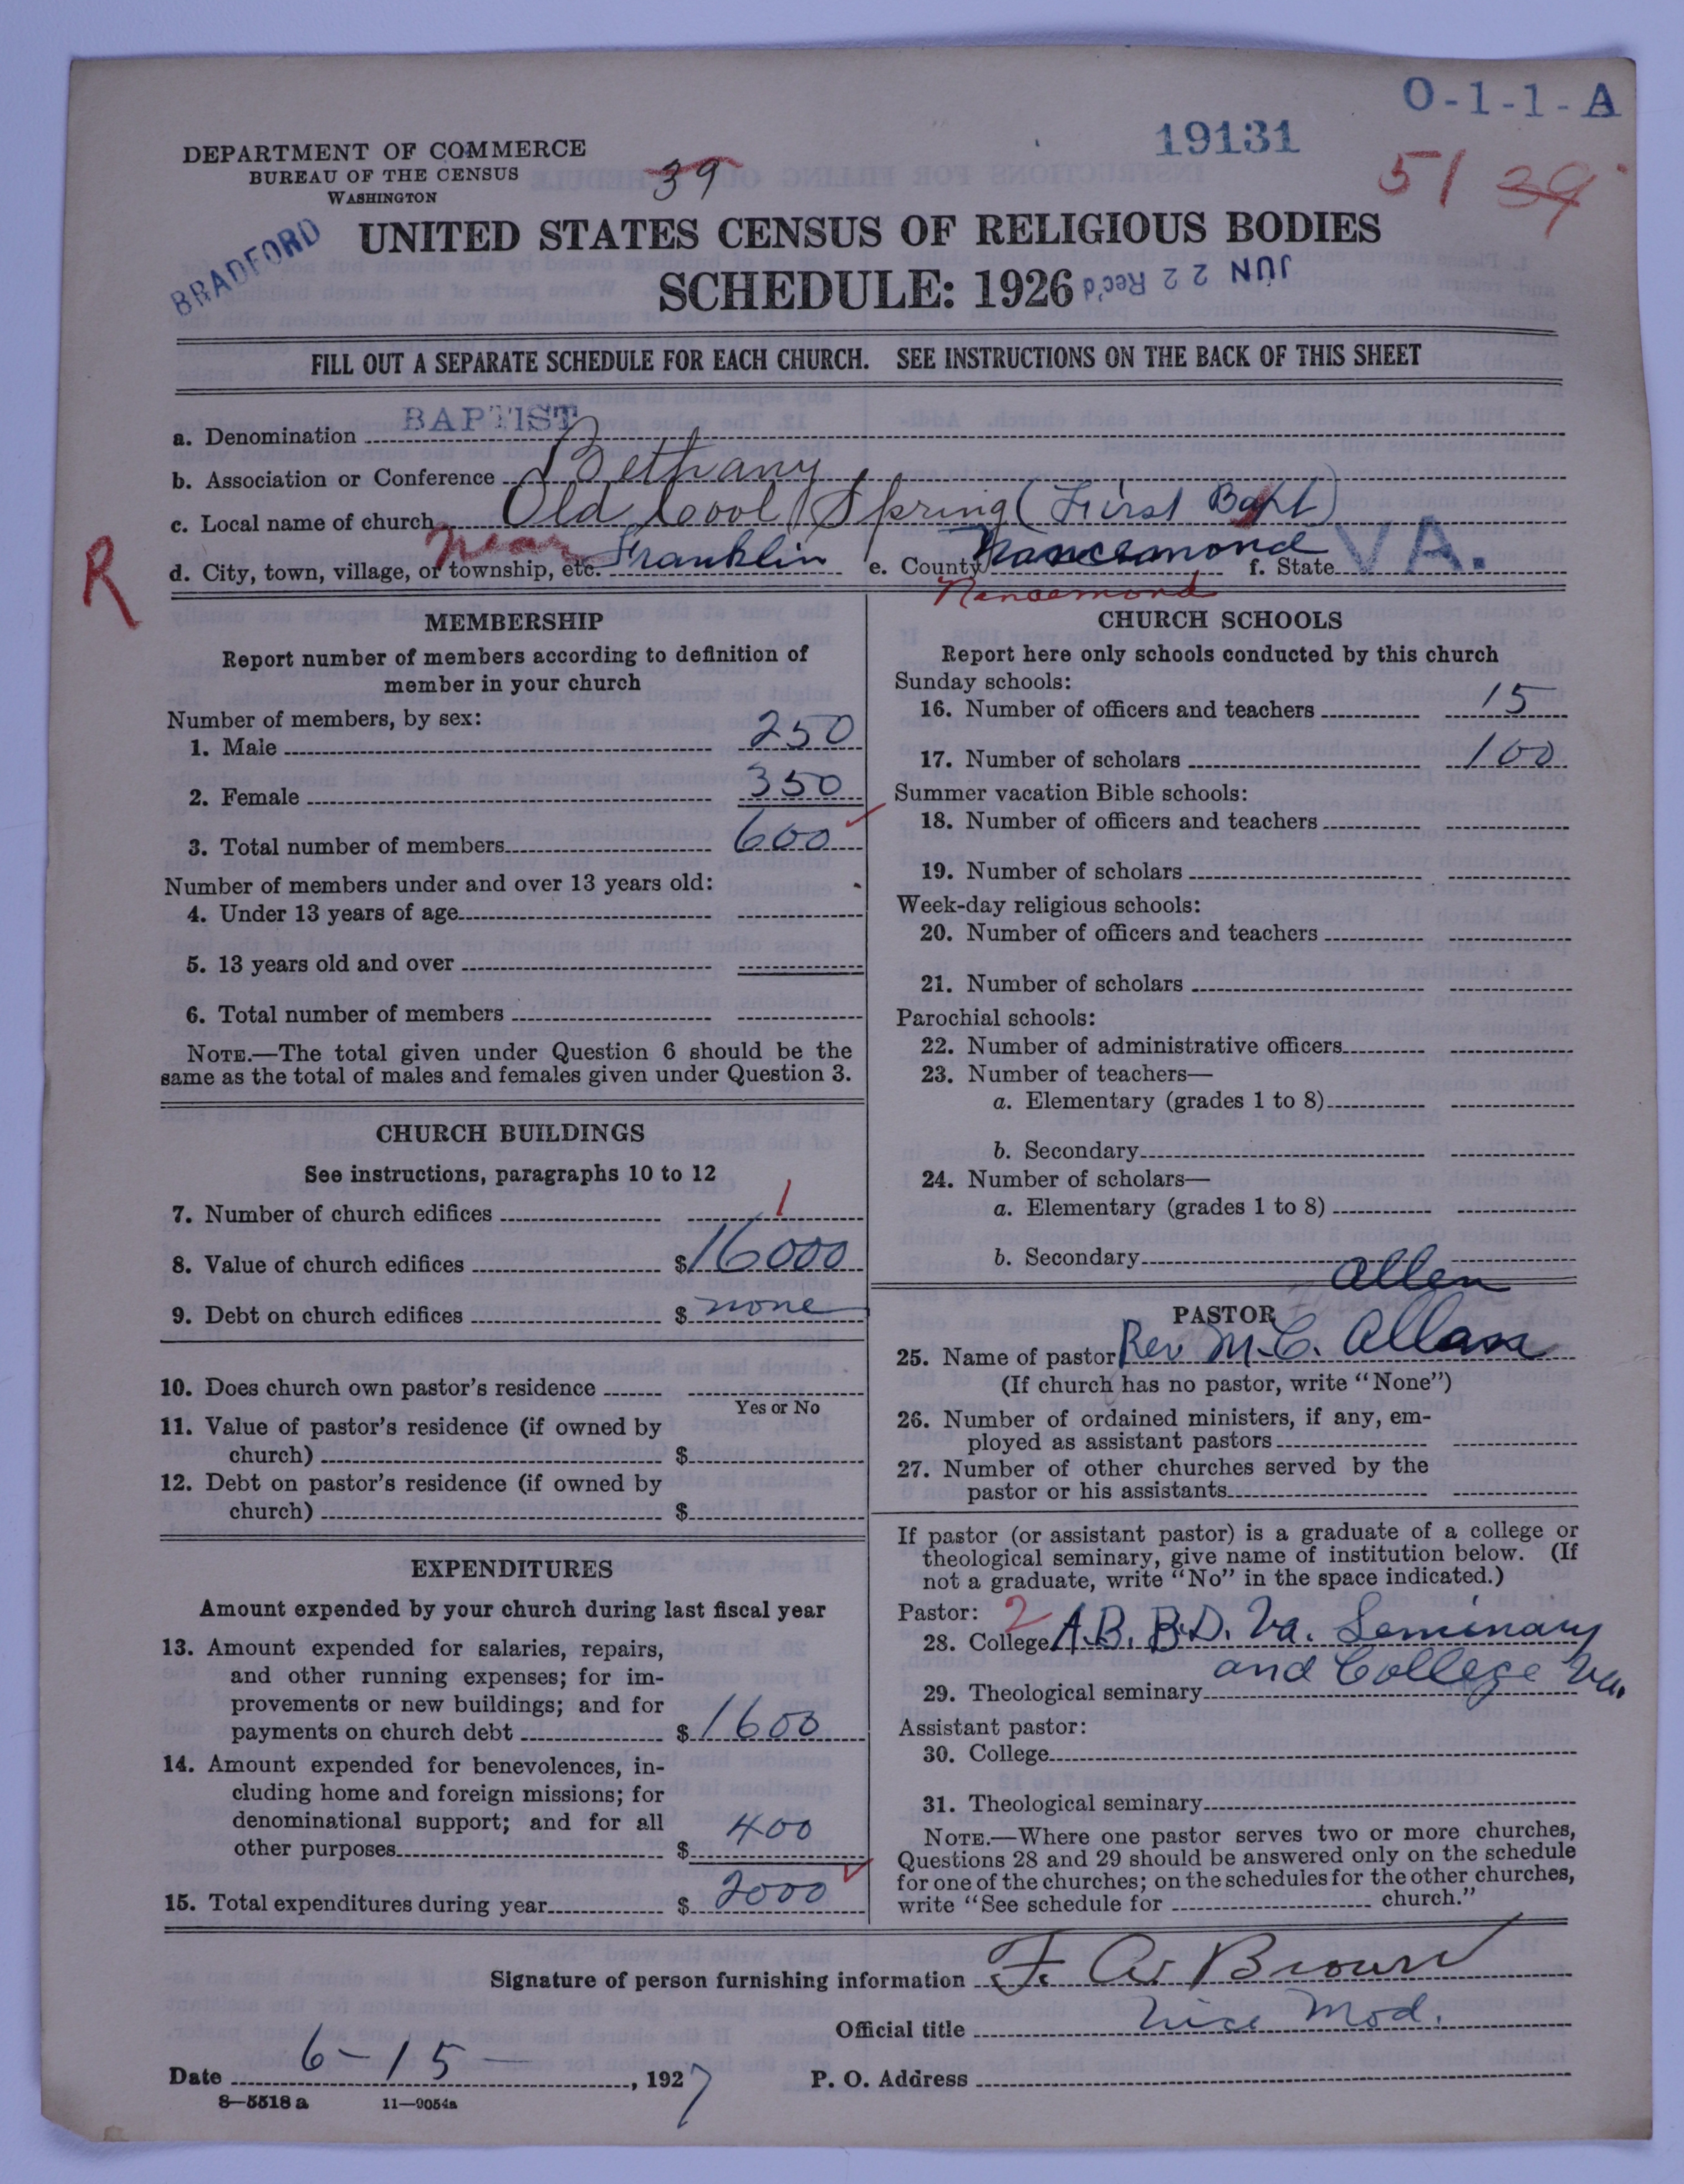 O-1-1-A
19131
DEPARTMENT OF COMMERCE
BUREAU OF THE CENSUS
WASHINGTON
39
51 39
BRADFORD
UNITED STATES CENSUS OF RELIGIOUS BODIES
SCHEDULE: 1926
JUN 22 Rec'd
FILL OUT A SEPARATE SCHEDULE FOR EACH CHURCH. SEE INSTRUCTIONS ON THE BACK OF THIS SHEET
a. Denomination BAPTIST
b. Association or Conference Bethany
c. Local name of church Old Cool Spring (First Bapt)
R
d. City, town, village, or township, etc. near Franklin e. County Nancemond f. State VA.
Nancemond
MEMBERSHIP
Report number of members according to definition of
member in your church
Number of members, by sex:
1. Male 250
2. Female 350
3. Total number of members 600
Number of members under and over 13 years old:
4. Under 13 years of age
5. 13 years old and over
6. Total number of members
NOTE.—The total given under Question 6 should be the
same as the total of males and females given under Question 3.
CHURCH BUILDINGS
See instructions, paragraphs 10 to 12
7. Number of church edifices 1
8. Value of church edifices $16000
9. Debt on church edifices $ none
10. Does church own pastor's residence
Yes or No
11. Value of pastor's residence (if owned by
church) $
12. Debt on pastor's residence (if owned by
church) $
EXPENDITURES
Amount expended by your church during last fiscal year
13. Amount expended for salaries, repairs,
and other running expenses; for im-
provements or new buildings; and for
payments on church debt $1600
14. Amount expended for benevolences, in-
cluding home and foreign missions; for
denominational support; and for all
other purposes $ 400
15. Total expenditures during year $ 2000
CHURCH SCHOOLS
Report here only schools conducted by this church
Sunday schools:
16. Number of officers and teachers 15
17. Number of scholars 100
Summer vacation Bible schools:
18. Number of officers and teachers
19. Number of scholars
Week-day religious schools:
20. Number of officers and teachers
21. Number of scholars
Parochial schools:
22. Number of administrative officers
23. Number of teachers—
a. Elementary (grades 1 to 8)
b. Secondary
24. Number of scholars—
a. Elementary (grades 1 to 8)
b. Secondary
Allen
PASTOR
25. Name of pastor Rev M. C. Allen
(If church has no pastor, write "None")
26. Number of ordained ministers, if any, em-
ployed as assistant pastors
27. Number of other churches served by the
pastor or his assistants
If pastor (or assistant pastor) is a graduate of a college or
theological seminary, give name of institution below. (If
not a graduate, write "No" in the space indicated.)
Pastor: 2
28. College A.B. B.D. Va. Seminary
and College Va.
29. Theological seminary
Assistant pastor:
30. College
31. Theological seminary
NOTE.—Where one pastor serves two or more churches,
Questions 28 and 29 should be answered only on the schedule
for one of the churches; on the schedules for the other churches,
write "See schedule for church."
Signature of person furnishing information F. A. Brown
Official title Vice Mod.
Date 6-15, 1927 P. O. Address
8-5518 a 11-9054a